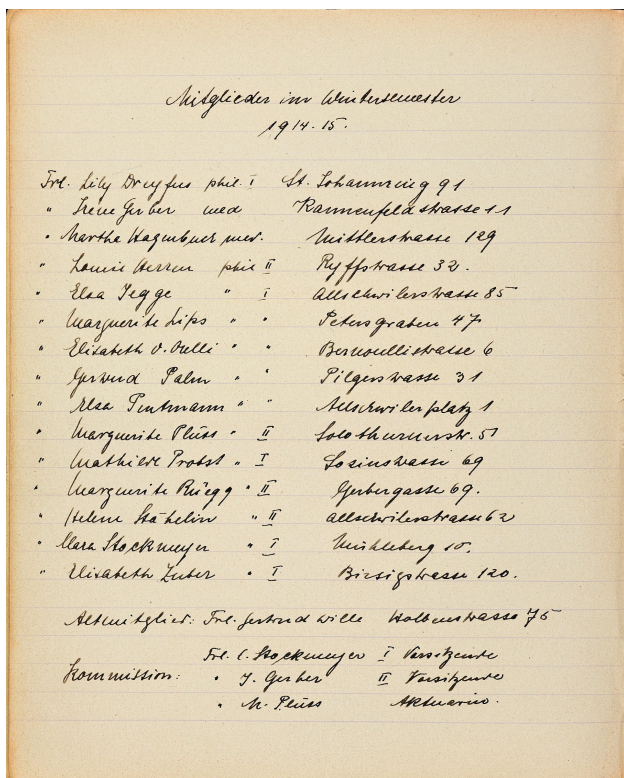 Mitglieder im Wintersemester
1914-15.
Frl. Lily Dreyfus phil. I St. Johannring 91
" Irene Gerber med Kannenfeldstrasse 11
" Martha Hagenbuch med. Mittlerstrasse 129
" Louise Herren phil II Ryffstrasse 32.
" Elsa Jegge " I Allschwilerstrasse 85
" Marguerite Lips " " Petersgraben 47
" Elisabeth v. Oelli " " Bernoullistrasse 6
" Gertrud Palm " " Pilgerstrasse 31
" Elsa Pentmann " " Allschwilerplatz 1
" Marguerite Plüss " II Solothurnerstr. 51
" Mathilde Probst " I Socinstrasse 69
" Marguerite Rüegg " II Gerbergasse 69.
" Helene Stähelin " II Allschwilerstrasse 62
" Clara Stockmeyer " I Mühleberg 10.
" Elisabeth Zuber " I Birsigstrasse 120.
Altmitglied: Frl. Gertrud Wille Holbeinstrasse 75
Frl. C. Stockmeyer I Vorsitzende
Kommission: " I. Gerber II Vorsitzende
" M. Plüss Aktuarin.